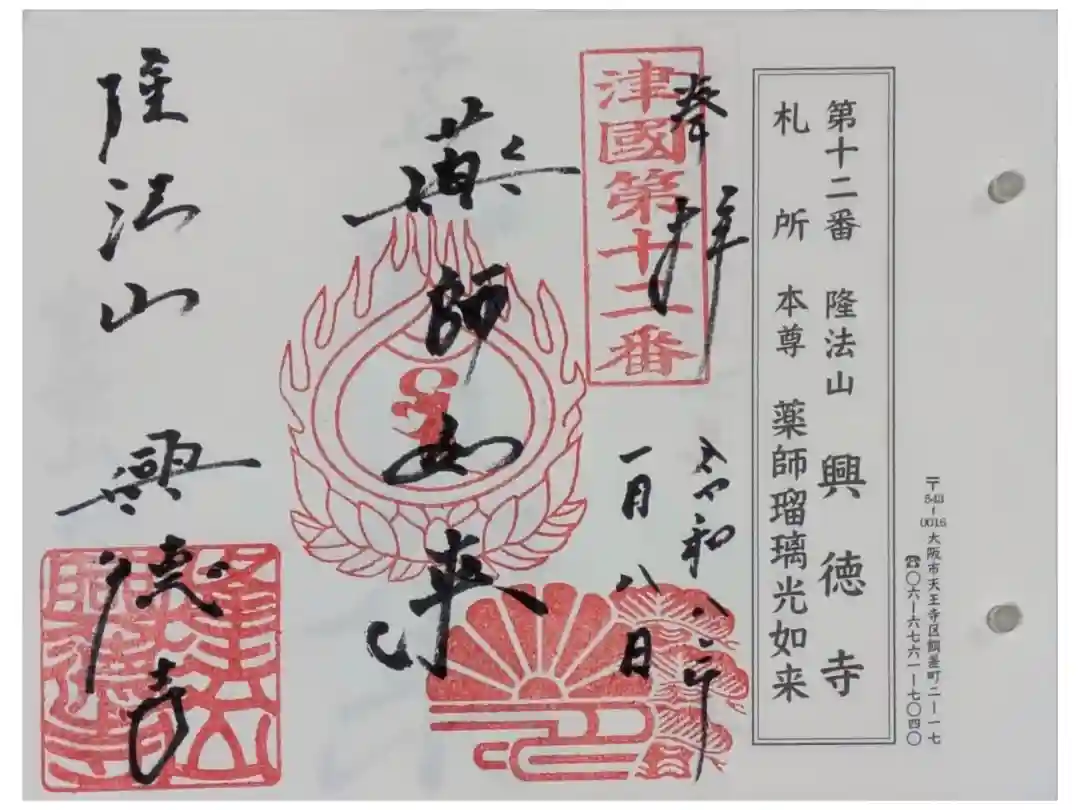 〒543-0016 大阪市天王寺区餌差町二ー一七
☎〇六ー六七六一ー七〇四〇
第十二番 隆法山 興徳寺
札所本尊 薬師瑠璃光如来
奉拝
津國第十二番
令和八年
一月八日
薬師如来
隆法山 興徳寺
隆法山
興德寺